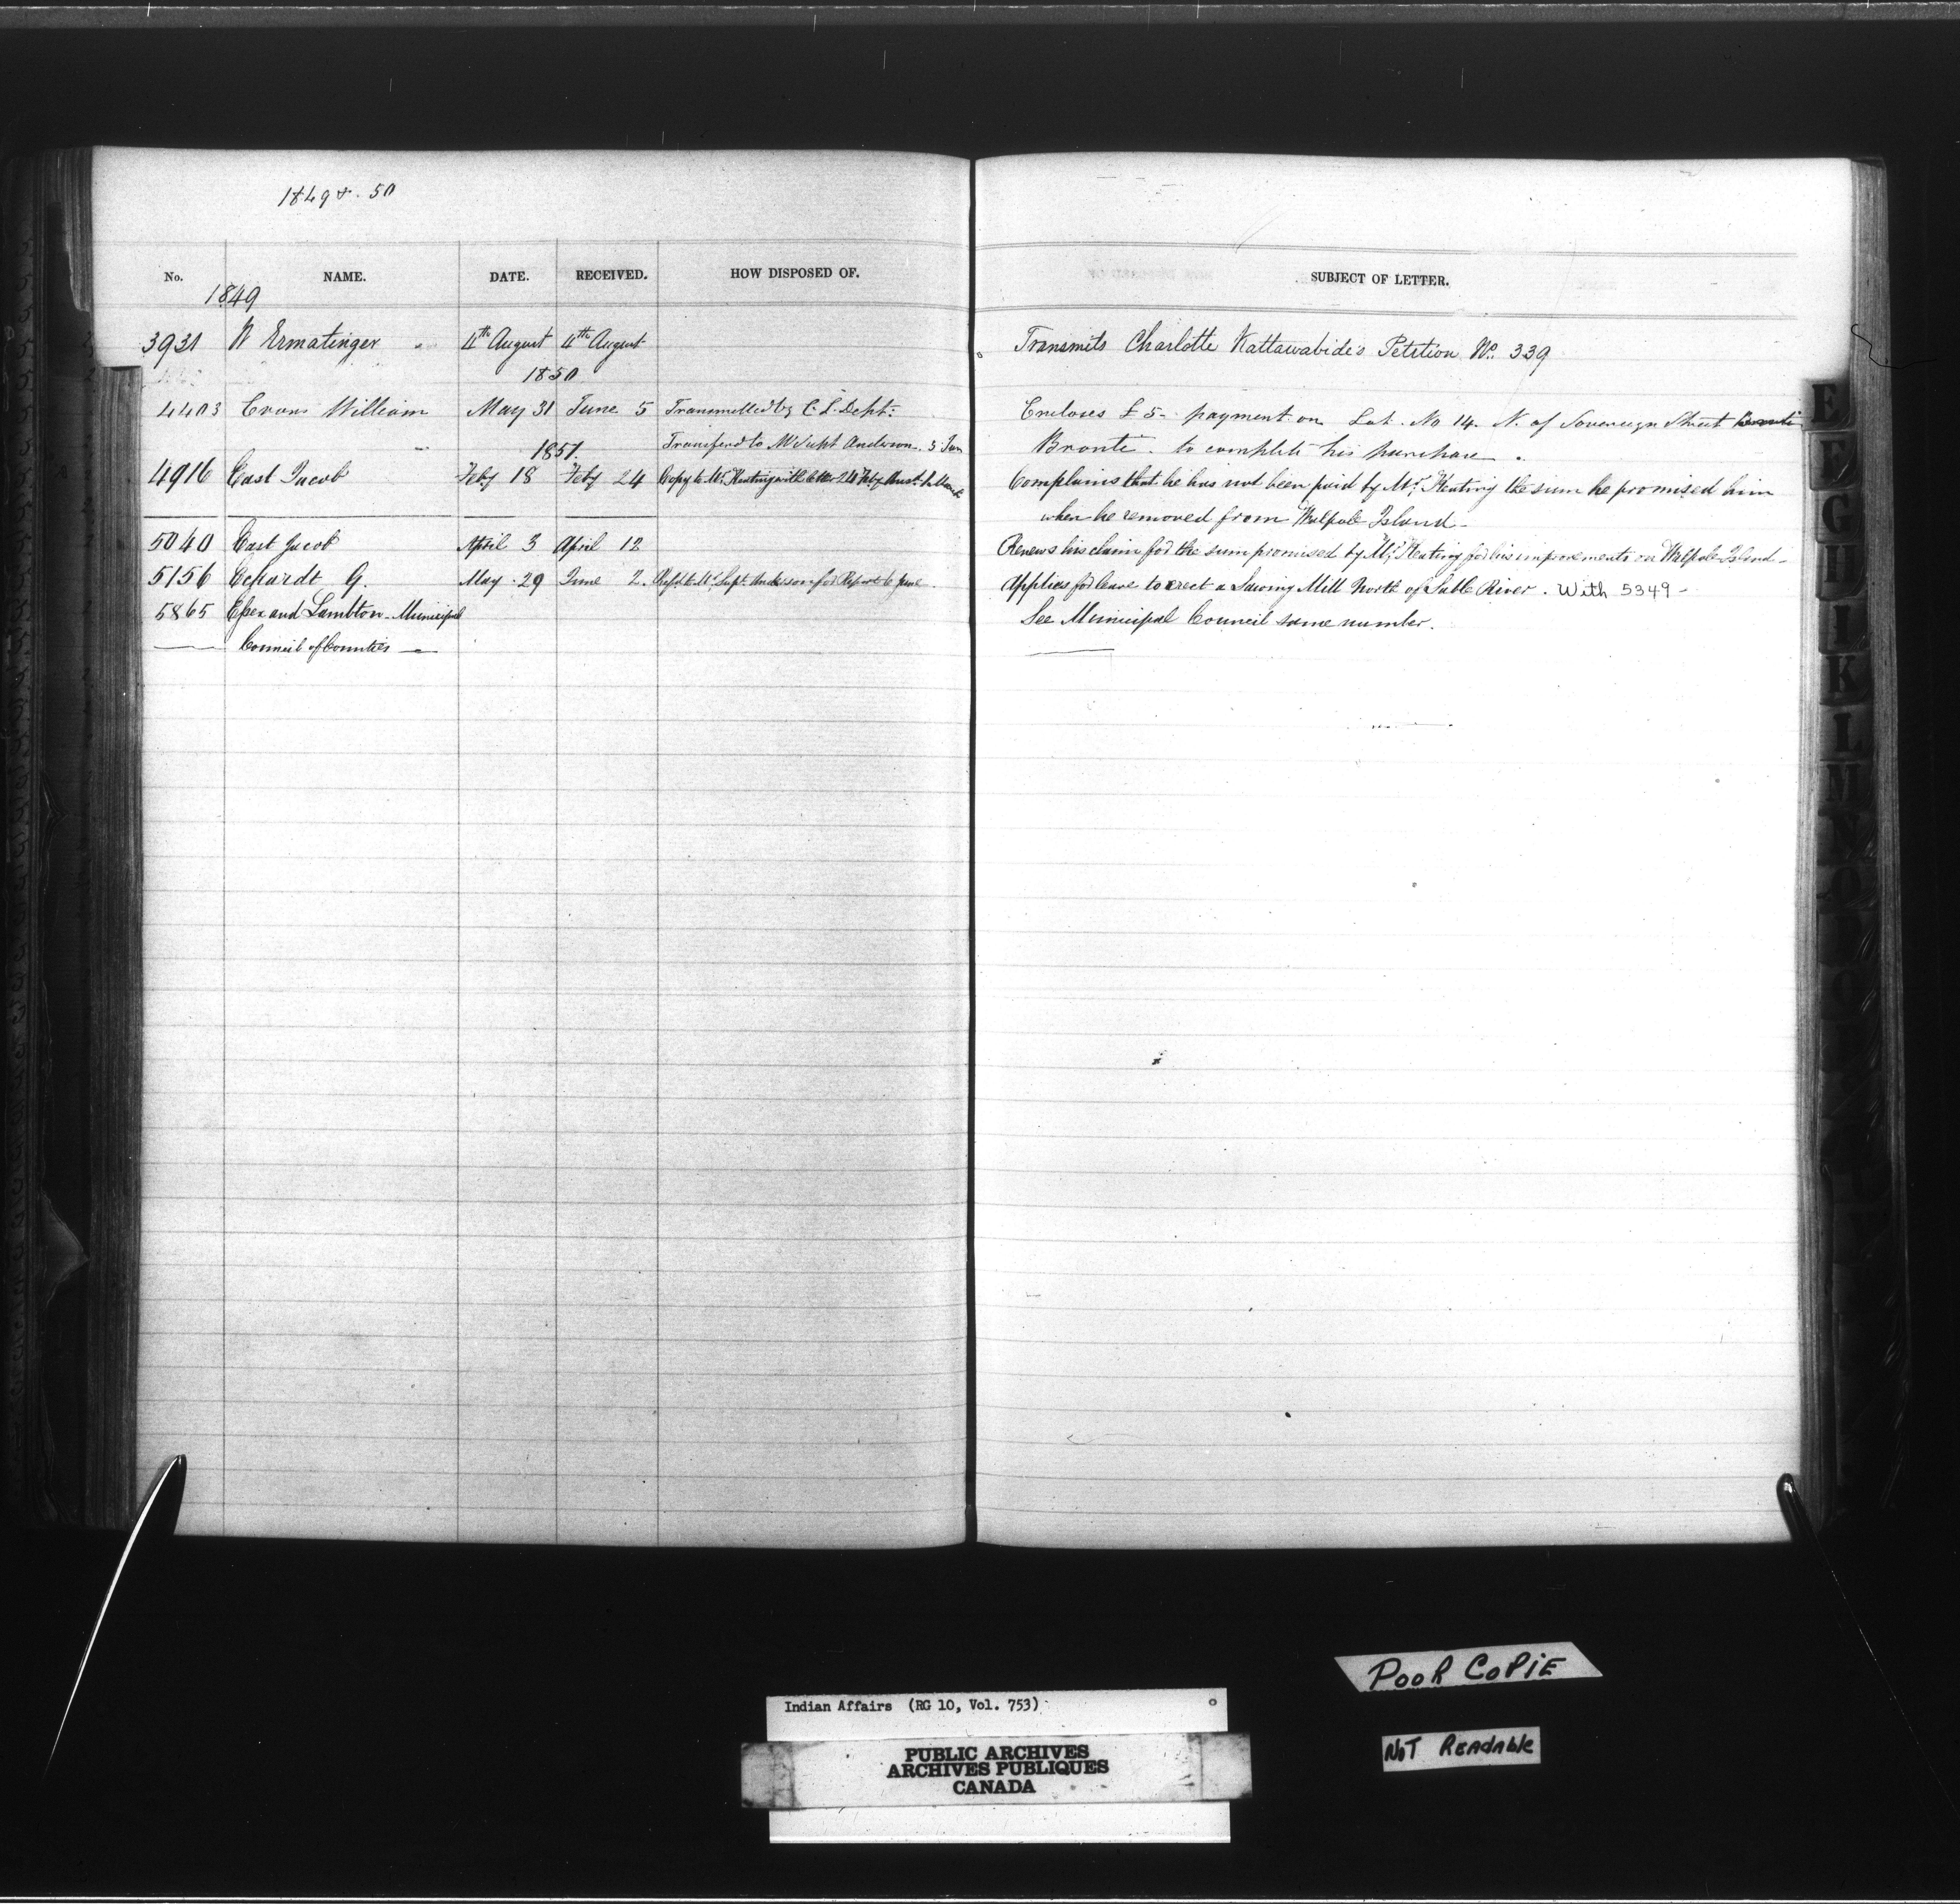 1849 & . 50
No. NAME. DATE. RECEIVED. HOW DISPOSED OF. SUBJECT OF LETTER.
1849
3931 Ermatinger 4th August 4th August Transmits Charlotte Kattawabide's Petition No. 339
1850
4403 Evans William May 31 June 5 Transmitted by C. L. Dept: Encloses £5- payment on Lot. No 14. N. of Sovereign Street
Transferd to Mr Supt Anderson. 3 Jan Bronte. to complete his purchase.
1851.
4916 East Jacob Feby 18 Feby 24 Copy to Mr. Keating with letter 24 Feby Complains that he has not been paid by Mr. Keating the sum he promised him
when he removed from Walpole Island-
5040 East Jacob April 3 April 12 Renews his claim for the sum promised by Mr. Keating for his improvements on Walpole Island-
5156 Eckardt G. May . 29 June 2. Refd to Mr. Supt. Anderson for Report 6 June. Applies for leave to erect a Sawing Mill North of Sable River. With 5349 -
5865 Essex and Lambton - Municipal See Municipal Council same number.
Council of Counties
E
F
G
H
I
K
L
M
N
POOR COPIE
Indian Affairs (RG 10, Vol. 753)
NOT READABLE
PUBLIC ARCHIVES
ARCHIVES PUBLIQUES
CANADA